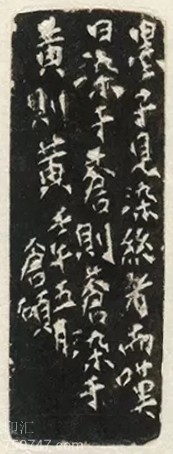 墨子見染絲者而嘆
曰染于蒼則蒼染于
黃則黃 壬午五月
倉碩